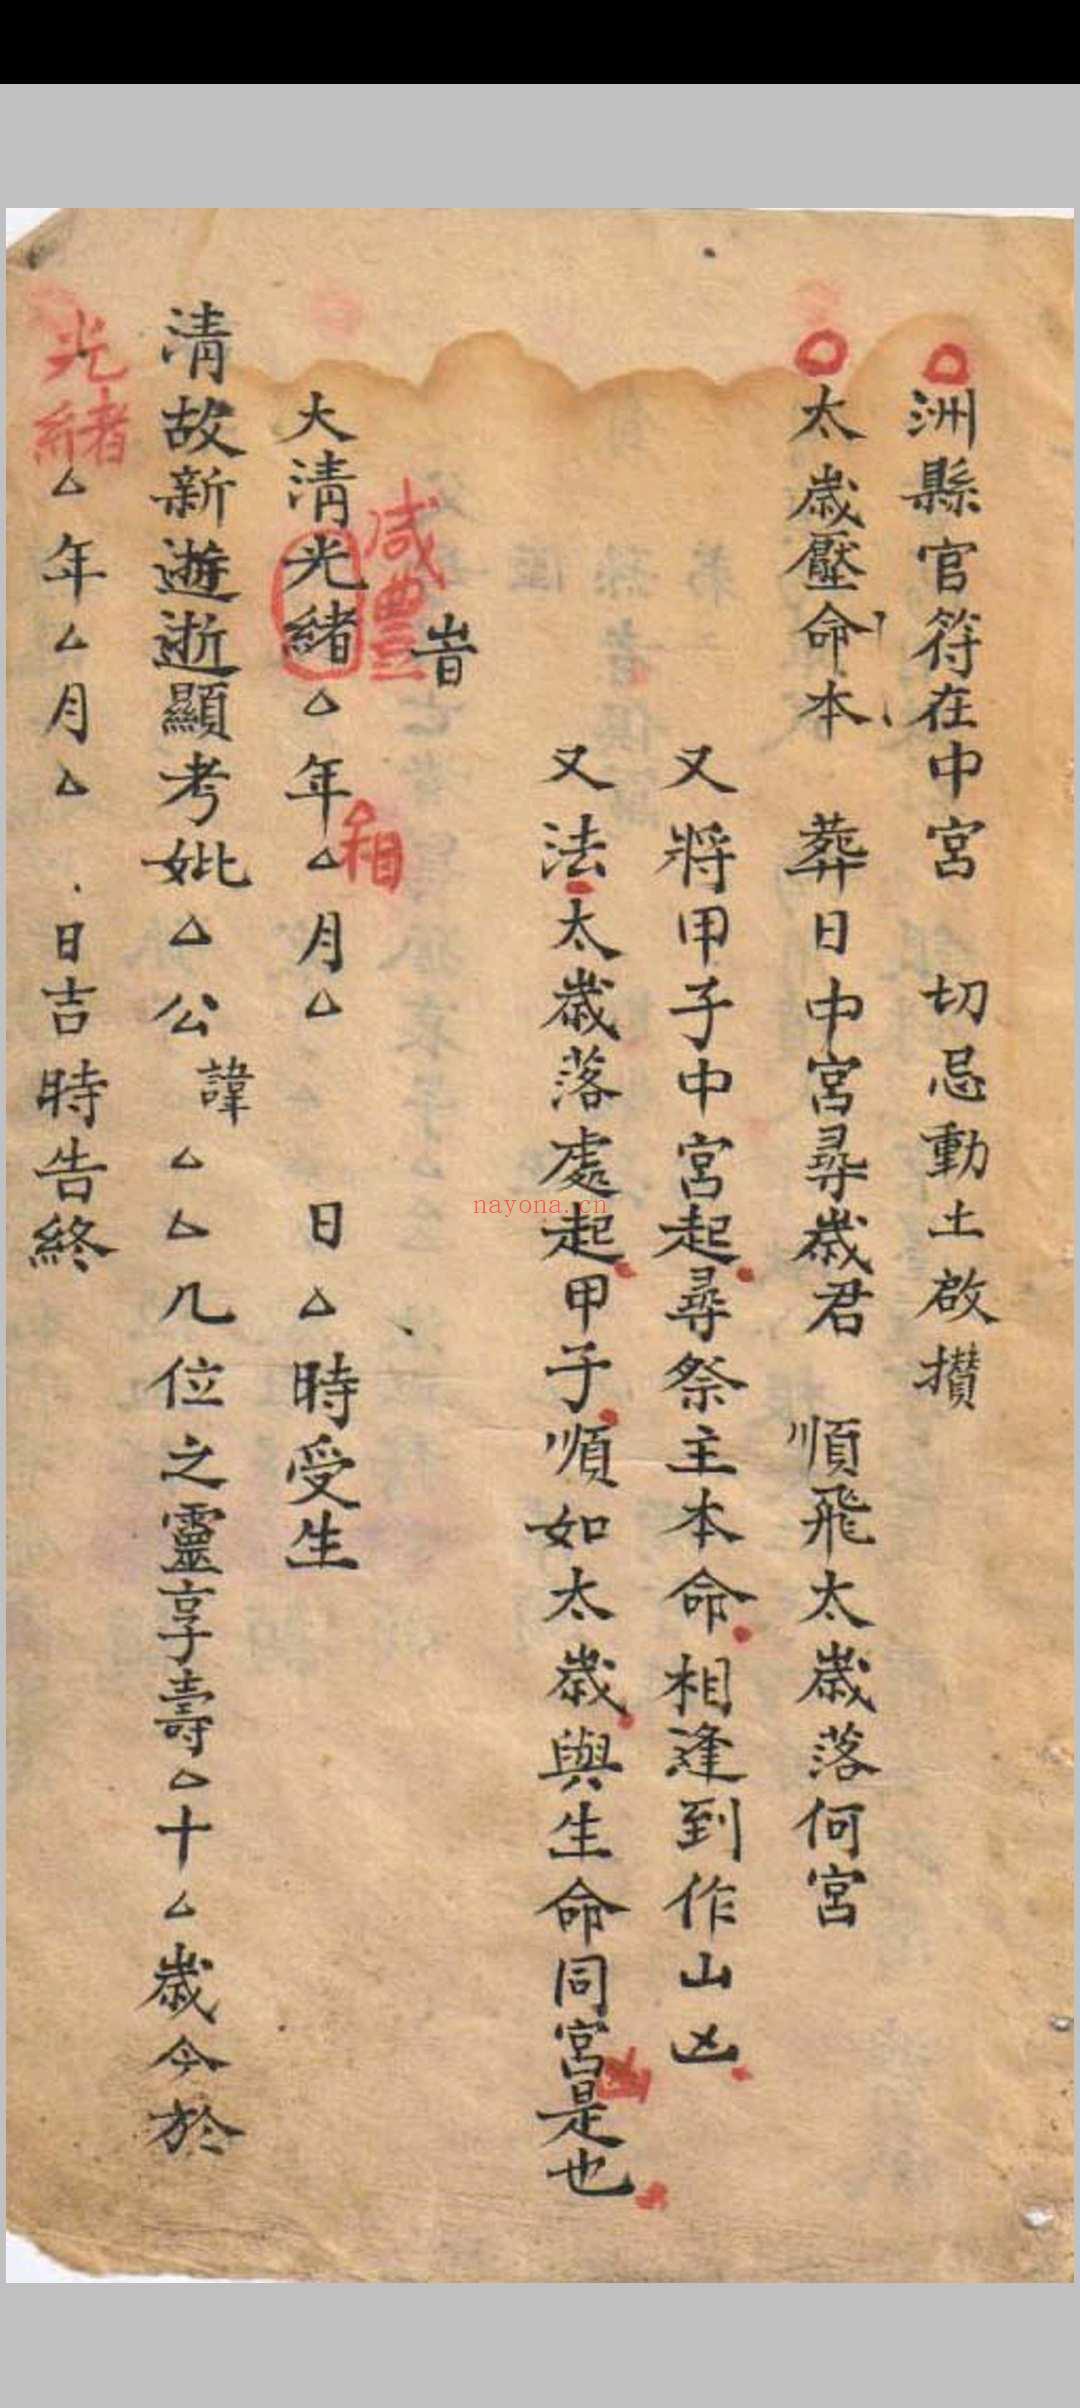 洲縣官符在中宮 切忌動土啟攅
太歲壓命本 葬日中宮尋歲君 順飛太歲落何宮
又將甲子中宮起尋祭主本命相逢到作山凶
又法太歲落處起甲子順如太歲與生命同宮是也
凶
旹
咸豐
大清光緒△年△月△ 日△時受生
相
清故新遊逝顯考妣△公諱△△几位之靈享壽△十△歲今於
光緒△年△月△ 日吉時告終
nayona.cn